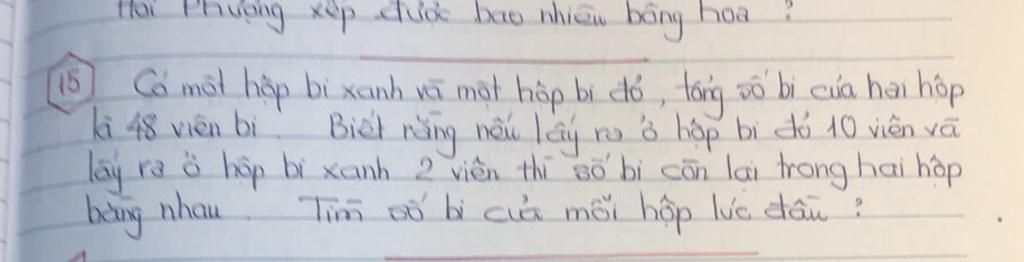 Hai Phượng xếp được bao nhiêu bông hoa ?
15 Có một hộp bi xanh và một hộp bi đỏ, tổng số bi của hai hộp
là 48 viên bi. Biết rằng nếu lấy ra ở hộp bi đỏ 10 viên và
lấy ra ở hộp bi xanh 2 viên thì số bi còn lại trong hai hộp
bằng nhau. Tìm số bi của mỗi hộp lúc đầu ?